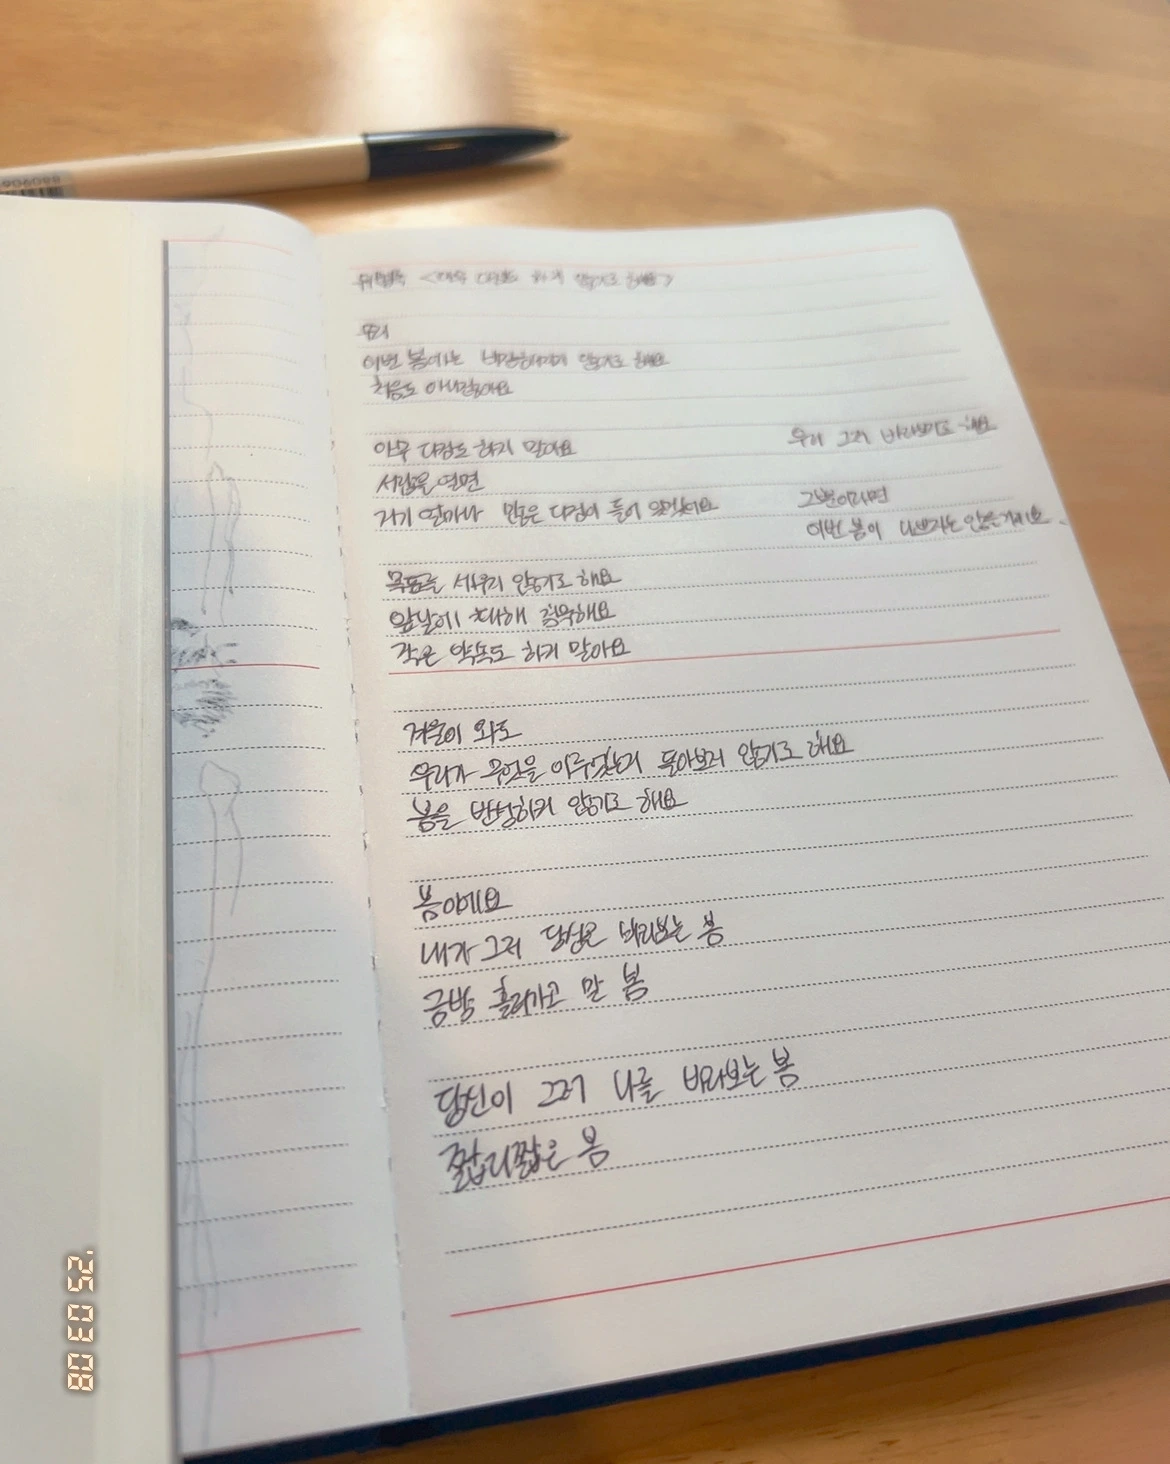 위형폭 <아무 다짐도 하지 않기로 해요>
우리
이번 봄에는 비장해지지 않기로 해요
처음도 아니잖아요
아무 다짐도 하지 말아요
서랍을 열면
거기 얼마나 많은 다짐이 들어 있겠어요
목표를 세우지 않기로 해요
앞날에 대해 침묵해요
작은 약속도 하지 말아요
겨울이 와도
우리가 무엇을 이루었는지 돌아보지 않기로 해요
봄을 반성하지 않기로 해요
봄이에요
내가 그저 당신을 바라보는 봄
금방 흘러가고 말 봄
당신이 그저 나를 바라보는 봄
짧디짧은 봄
우리 그저 바라보기로 해요
그뿐이라면
이번 봄이 나쁘지는 않을 거예요
'25 03 08